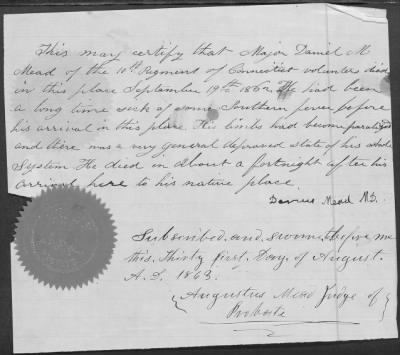 This may certify that Major Daniel M
Mead of the 10th Regment of Connecticut volunters died
in this place September 19th 1862 He had been
a long time sick of some Southern fever before
his arrival in this place. His limbs had become paralized
and there was a very general depraved state of his whole
System. He died in about a fortnight after his
arrival here to his native place.
Darius Mead M.D.
Subscribed and sworne before me
this Thirty first Day of August.
A.D. 1863.
Augustus Mead Judge of
Probate